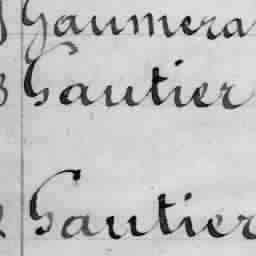 Gaumera
Gautier
Gautier